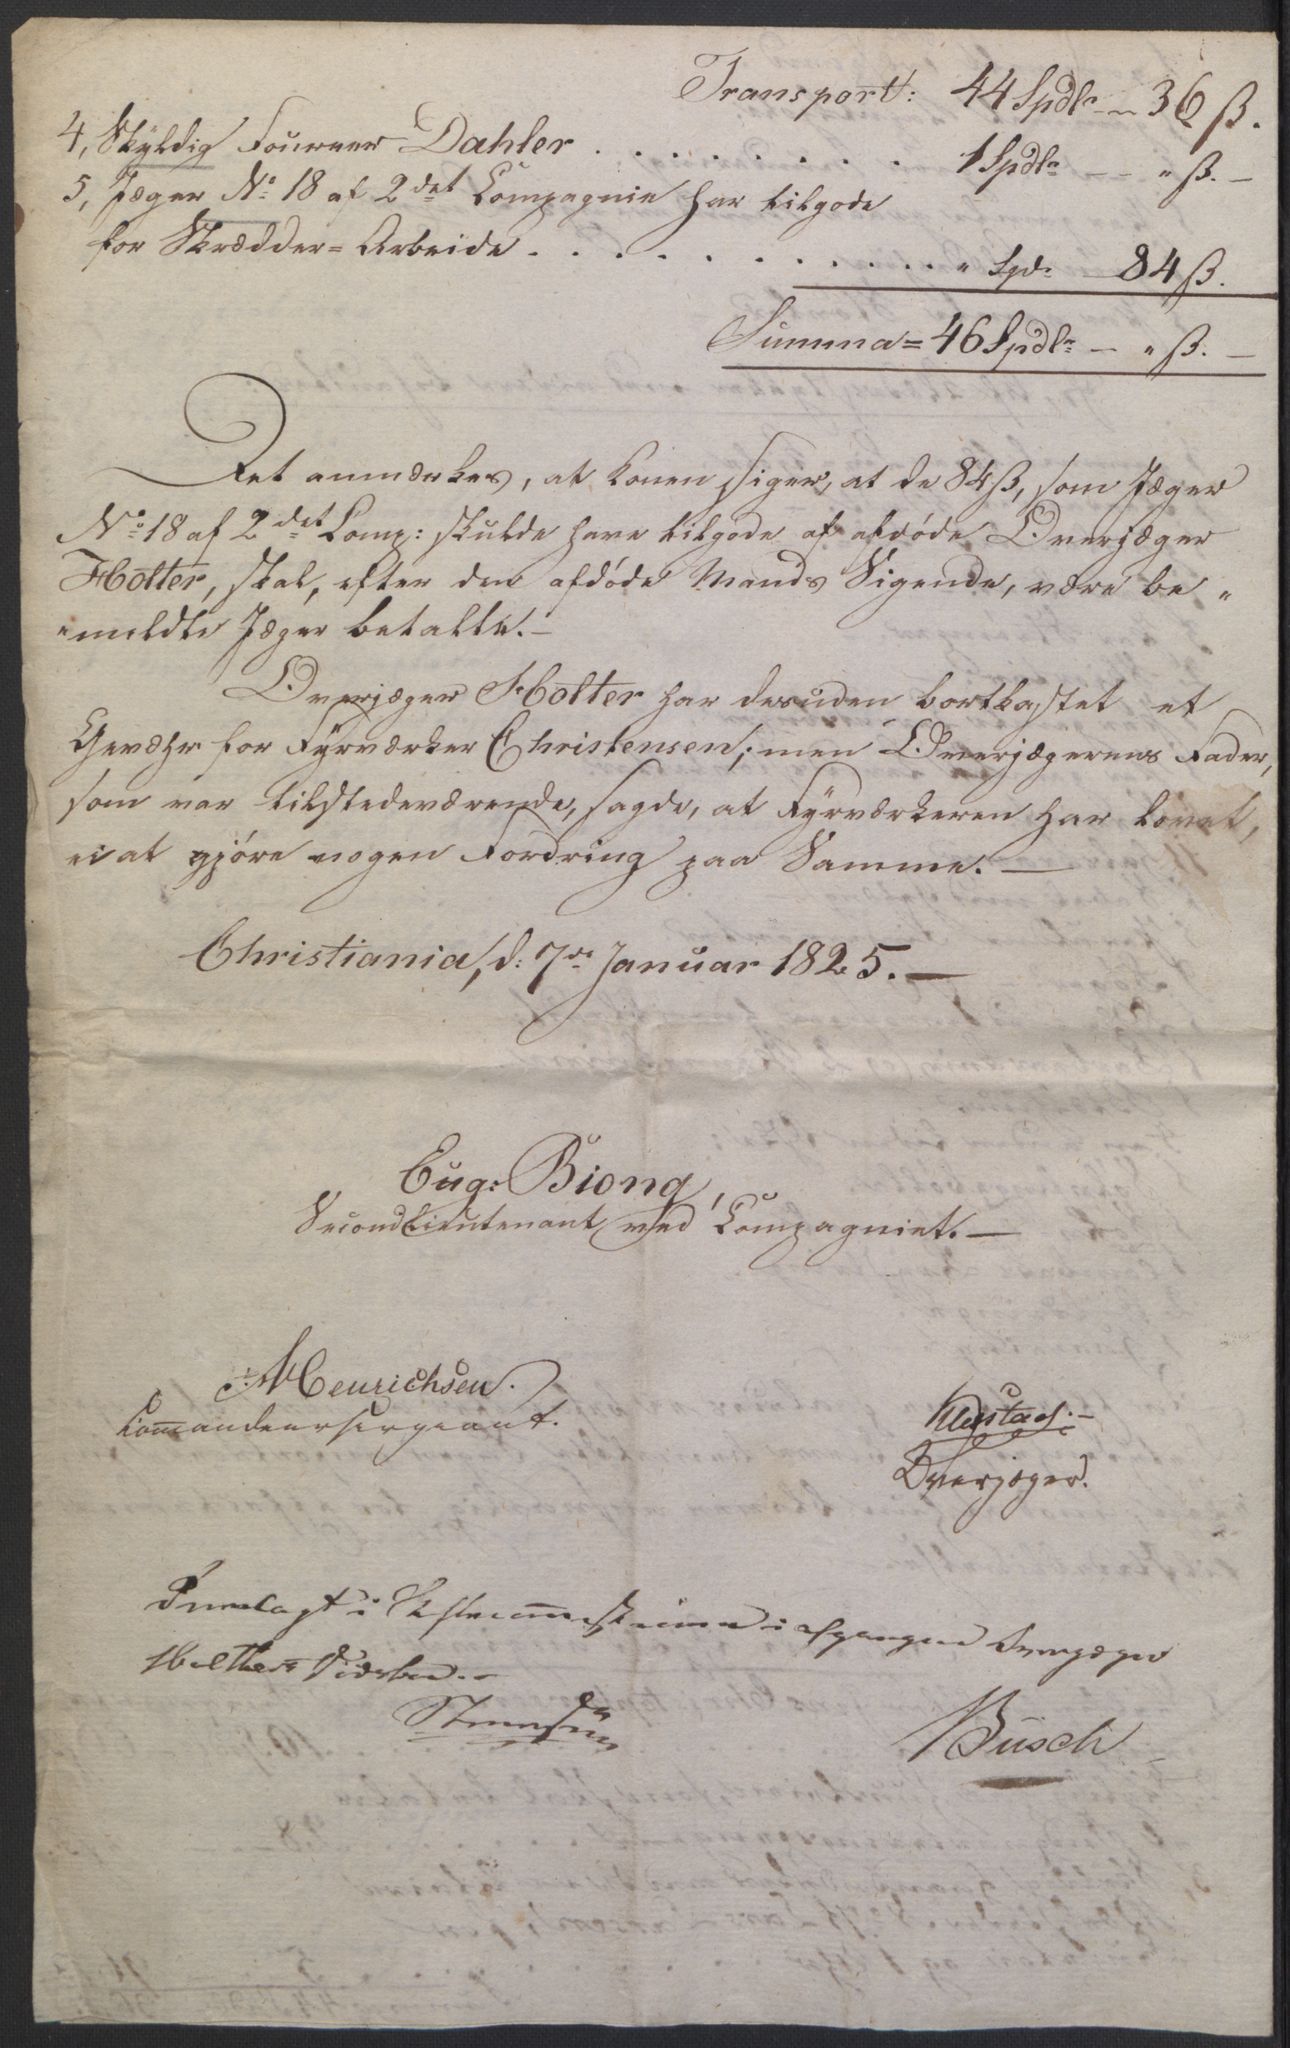 Transport: 44 Spdlr — 36 ß.
4, Skyldig Foureer Dahler . . . . . . . . 1 Spdlr — „ ß. —
5, Jæger No 18 af 2det Compagnie har tilgode
for Skrædder=Arbeide . . . . . . . . . . „ Spdr 84 ß.
Summa = 46 Spdlr — „ ß. —
Det anmærkes, at Konen siger, at de 84 ß, som Jæger
No 18 af 2det Comp: skulde have tilgode af afdøde Overjæger
Holter, skal, efter den afdøde Mands Sigende, være be „
„meldte Jæger betalte. —
Overjæger Holter har desuden bortkastet et
Gevæhr for Fyrværker Christensen; men Overjægerens Fader,
som var tilstedeværende, sagde, at Fyrværkeren har lovet,
ei at gjøre nogen Fordring paa Samme. —
Christiania, d: 7de Januar 1825. —
Eug: Biong,
Secondlieutenant ved Compagniet. —
Henrichsen.
Commandeersergeant.
Overjæger.
Fremlagt i i afgangne Overjæger
Holters Stervboe. —
Busch